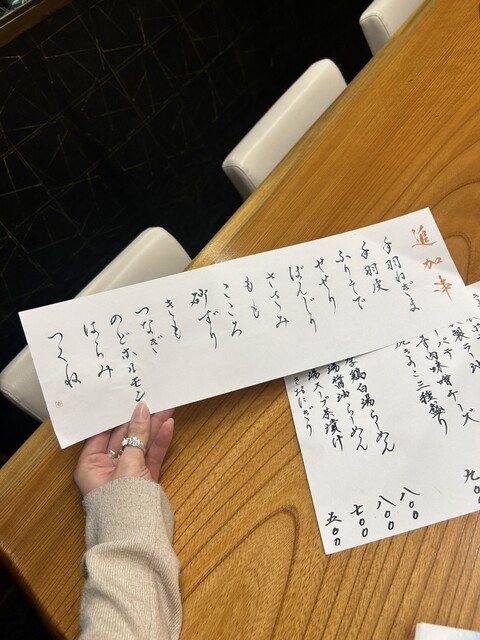 追加串
手羽ねぎま
手羽皮
ふりそで
せせり
ぼんじり
ささみ
もも
こころ
砂ずり
きも
つなぎ
のどホルモン
はらみ
つくね
三種盛り
鶏白湯らーめん
八〇〇
湯醤油らーめん
八〇〇
湯スープ茶漬け
七〇〇
おにぎり
五〇〇